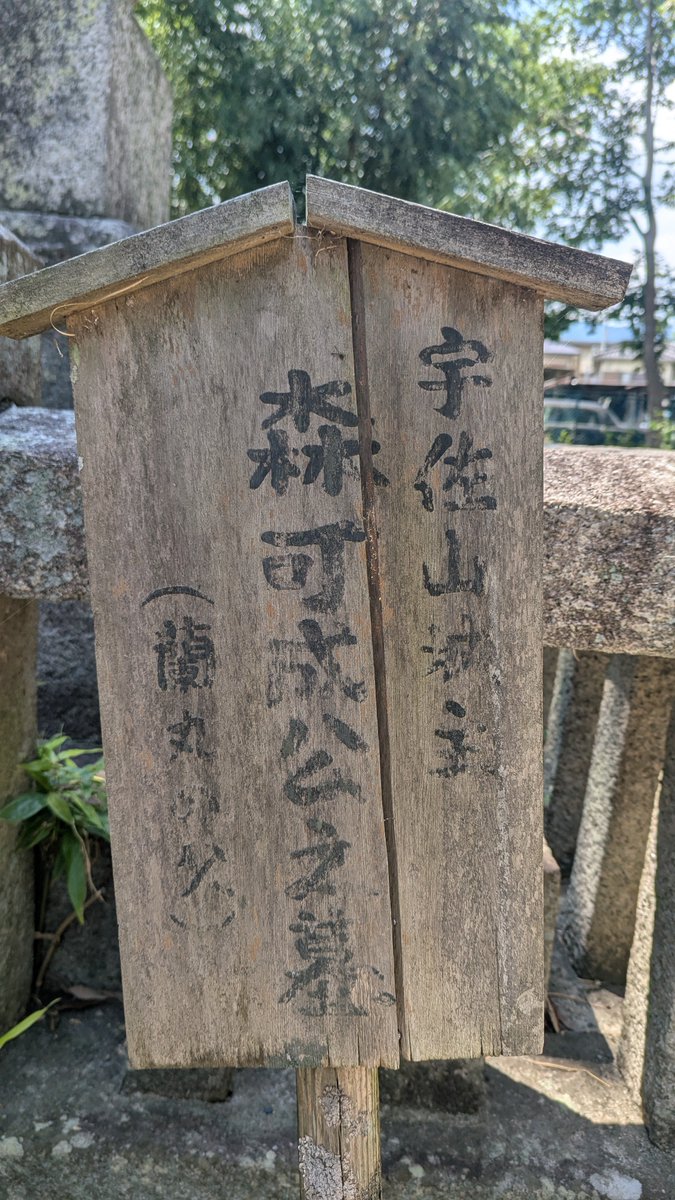 宇佐山城主
森可成公之墓
(蘭丸の父)